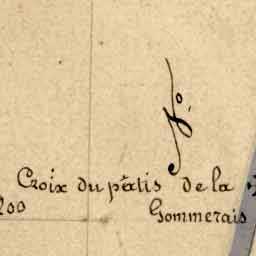 Croix du pâtis de la
Gommerais